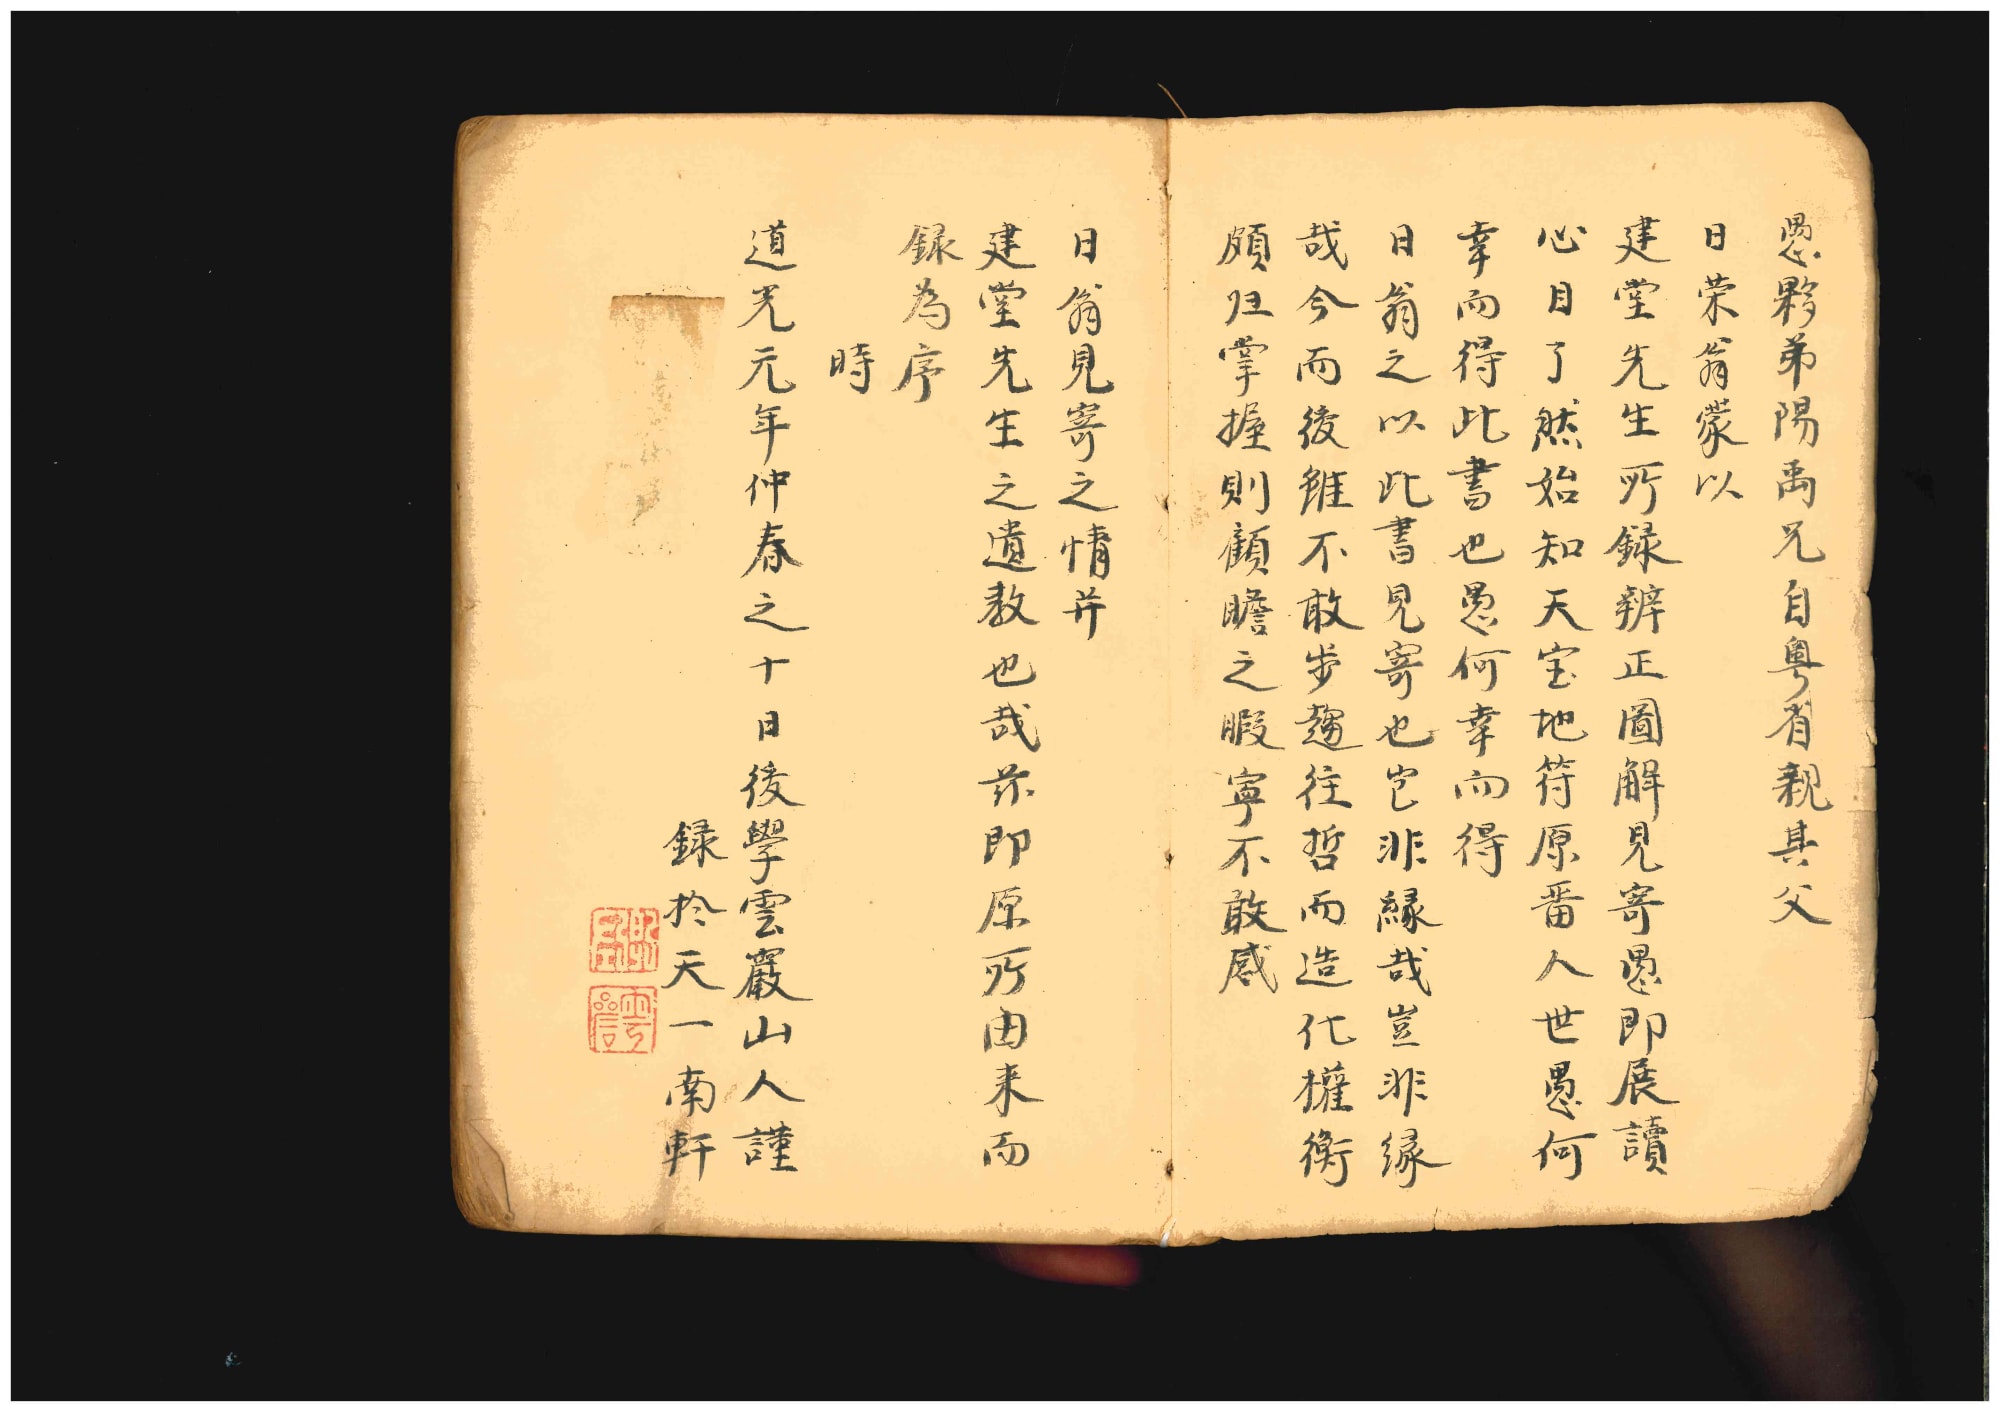 愚夥弟陽禹兄自粵省親其父
日荣翁蒙以
建堂先生所録辨正圖解見寄愚即展讀
心目了然始知天宝地符原畨人世愚何
幸而得此書也愚何幸而得
日翁之以此書見寄也岂非縁哉豈非缘
哉今而後雖不敢步趨往哲而造化權衡
頗归掌握則顧瞻之暇寧不敢感
日翁見寄之情并
建堂先生之遺教也哉茲即原所由来而
録為序
時
道光元年仲春之十日後學雲巖山人謹
録扵天一南軒